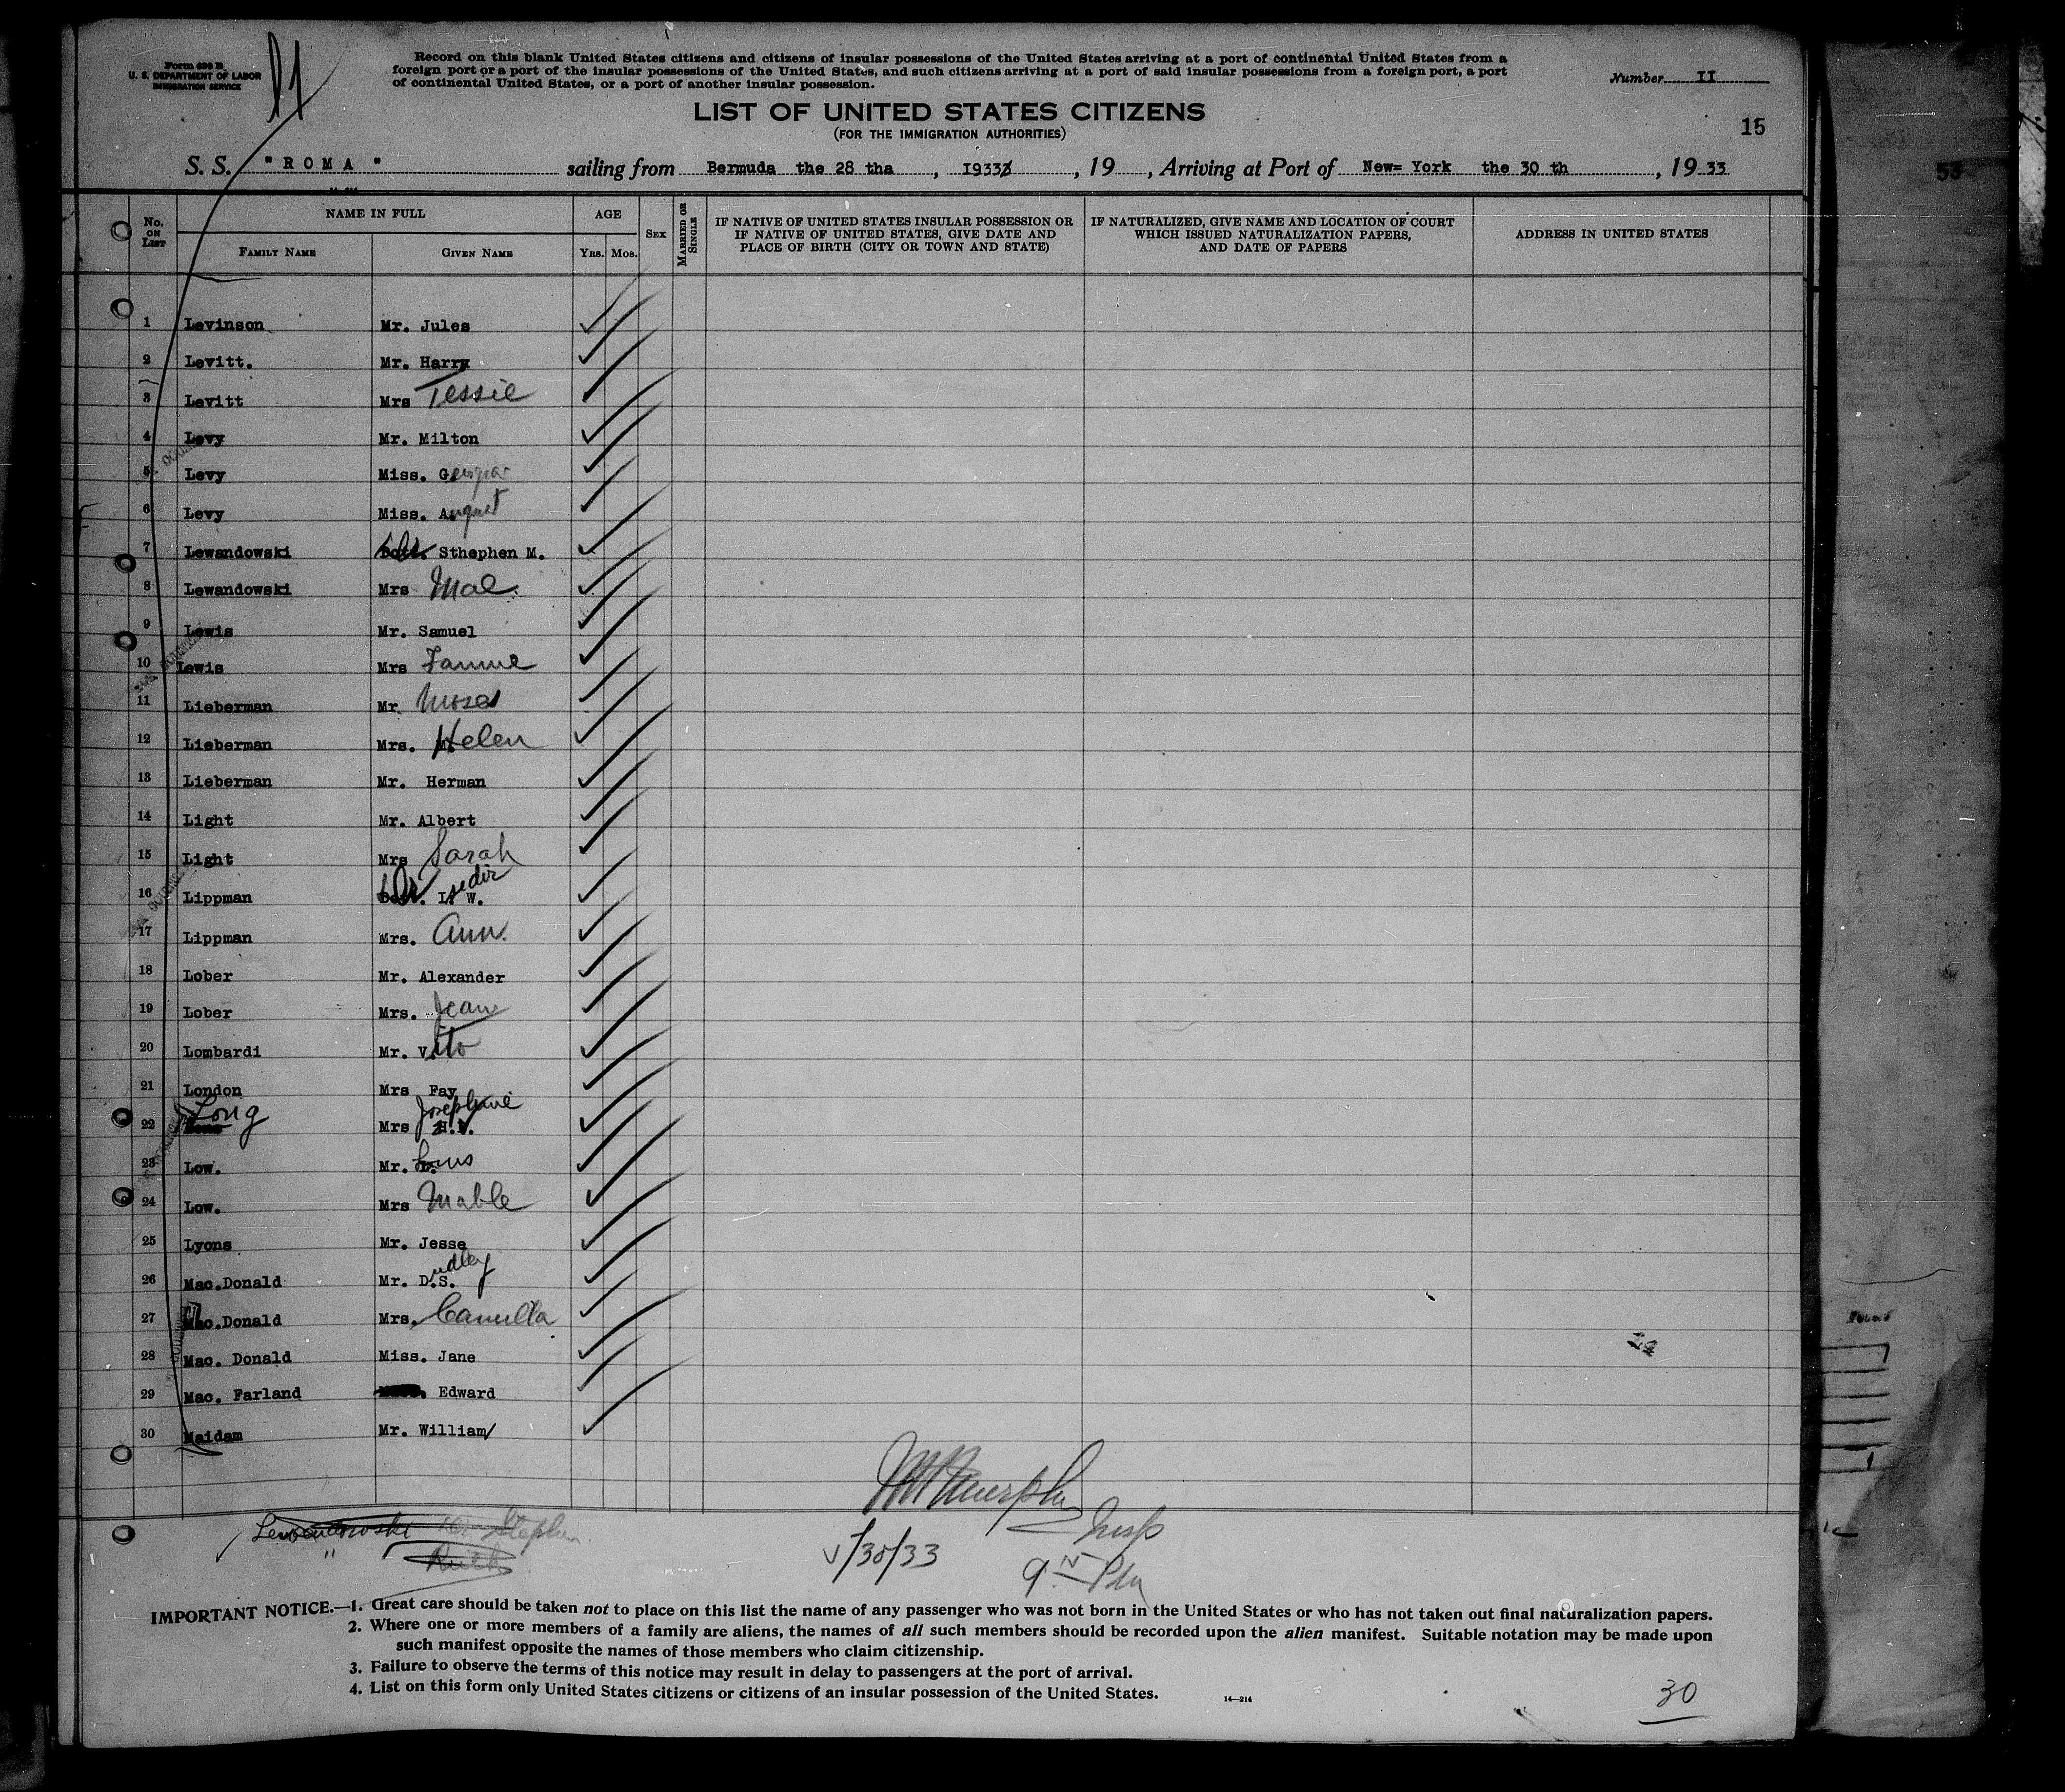 Form 630 B
U. S. DEPARTMENT OF LABOR
IMMIGRATION SERVICE
Record on this blank United States citizens and citizens of insular possessions of the United States arriving at a port of continental United States from a
foreign port or a port of the insular possessions of the United States, and such citizens arriving at a port of said insular possessions from a foreign port, a port
of continental United States, or a port of another insular possession.
Number II
LIST OF UNITED STATES CITIZENS
(FOR THE IMMIGRATION AUTHORITIES)
15
S. S. "ROMA" sailing from Bermuda the 28 tha , I933 , 19 , Arriving at Port of New= York the 30 th , 19 33
No. ON LIST
NAME IN FULL
FAMILY NAME
GIVEN NAME
AGE
YRS. MOS.
SEX
MARRIED OR SINGLE
IF NATIVE OF UNITED STATES INSULAR POSSESSION OR
IF NATIVE OF UNITED STATES, GIVE DATE AND
PLACE OF BIRTH (CITY OR TOWN AND STATE)
IF NATURALIZED, GIVE NAME AND LOCATION OF COURT
WHICH ISSUED NATURALIZATION PAPERS,
AND DATE OF PAPERS
ADDRESS IN UNITED STATES
1 Levinson Mr. Jules
2 Levitt. Mr. Harry
3 Levitt Mrs Tessie
4 Levy Mr. Milton
5 Levy Miss. Georgia
6 Levy Miss. August
7 Lewandowski Dr. Sthephen M.
8 Lewandowski Mrs Mae
9 Lewis Mr. Samuel
10 Lewis Mrs Fannie
11 Lieberman Mr. Moses
12 Lieberman Mrs. Helen
13 Lieberman Mr. Herman
14 Light Mr. Albert
15 Light Mrs Sarah
16 Lippman Dr. Isedir W.
17 Lippman Mrs. Ann.
18 Lober Mr. Alexander
19 Lober Mrs. Jean
20 Lombardi Mr. Vito
21 London Mrs Fay
22 Long Mrs Josephine H.
23 Low. Mr. Louis
24 Low. Mrs Mable
25 Lyons Mr. Jesse
26 Mac.Donald Mr. Dudley S.
27 Mac.Donald Mrs. Camilla
28 Mac. Donald Miss. Jane
29 Mac. Farland Edward
30 Maidam Mr. William
Murphy
Insp
Lewandowski Stephen
" Ruth
V/30/33
9 PM
IMPORTANT NOTICE.—1. Great care should be taken not to place on this list the name of any passenger who was not born in the United States or who has not taken out final naturalization papers.
2. Where one or more members of a family are aliens, the names of all such members should be recorded upon the alien manifest. Suitable notation may be made upon
such manifest opposite the names of those members who claim citizenship.
3. Failure to observe the terms of this notice may result in delay to passengers at the port of arrival.
4. List on this form only United States citizens or citizens of an insular possession of the United States.
14—214
30